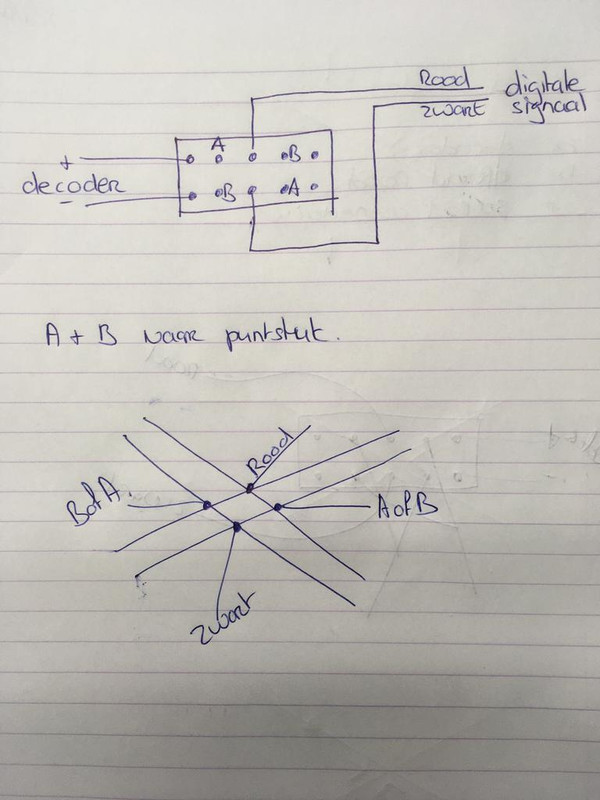 Rood digitale
zwart signaal
A
+ B
decoder
- B A
A + B naar puntstuk.
Rood
B of A. A of B
zwart